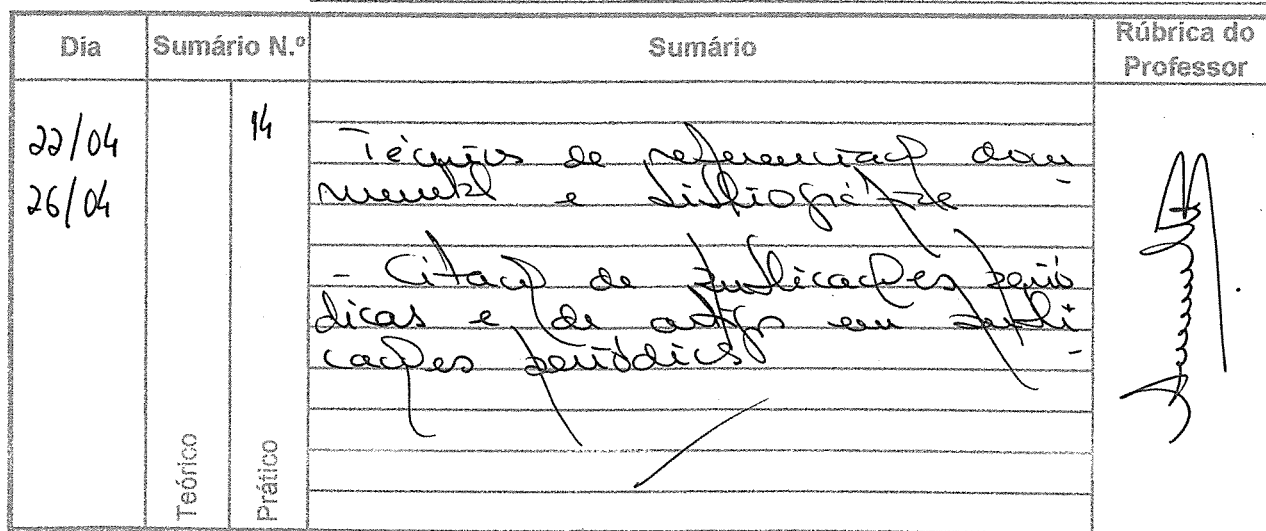 Dia
Sumário N.º
Sumário
Rúbrica do
Professor
22/04
26/04
14
Técnicas de referenciação docu
mental e bibliográfica
- Citação de publicações perió
dicas e de artigos em publi
cações periódicas
Teórico
Prático